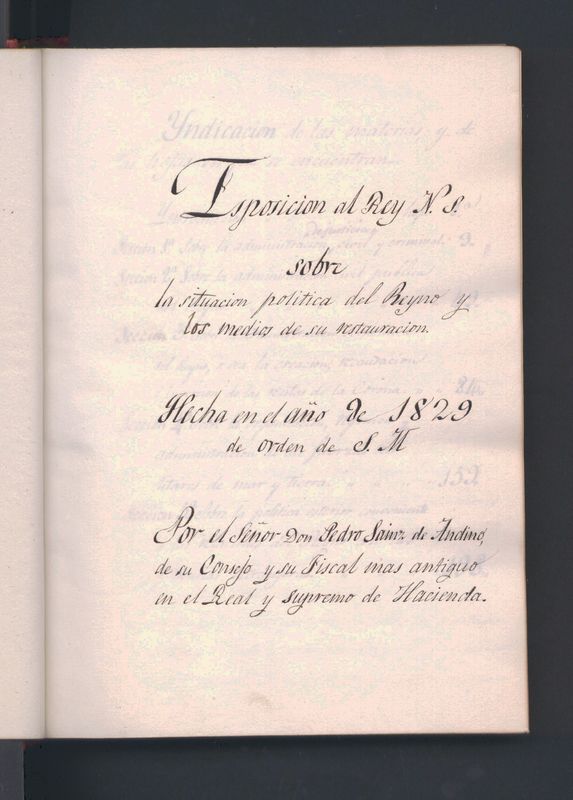 Esposicion al Rey N. S.
sobre
la situacion politica del Reyno y
los medios de su restauracion.
Hecha en el año de 1829
de orden de S. M
Por el Señor Don Pedro Sainz de Andino,
de su Consejo y su Fiscal mas antiguo
en el Real y supremo de Hacienda.